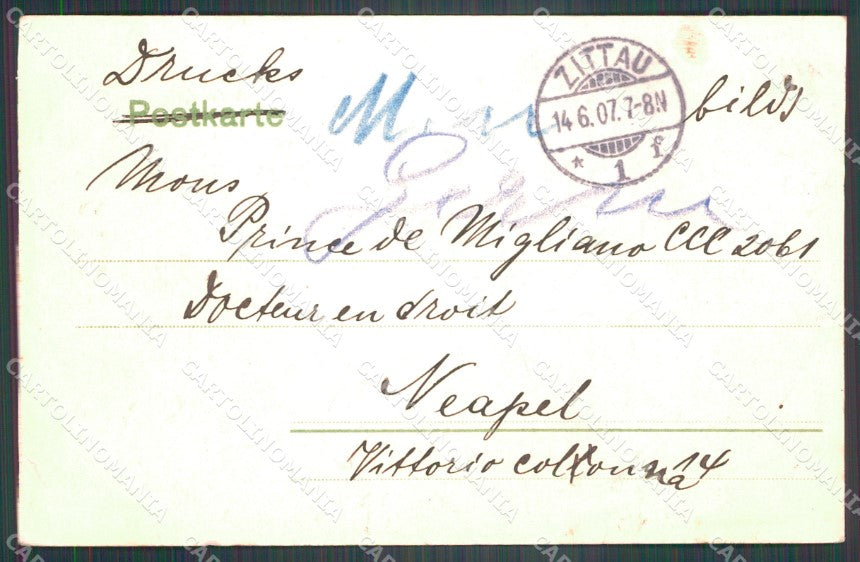 Drucks
Postkarte
bilds
ZITTAU
14.6.07.7-8N
* 1 f
Mons
Prince de Migliano CCC 2061
Docteur en droit
Neapel
Vittorio colonna 14
CARTOLINOMANIA